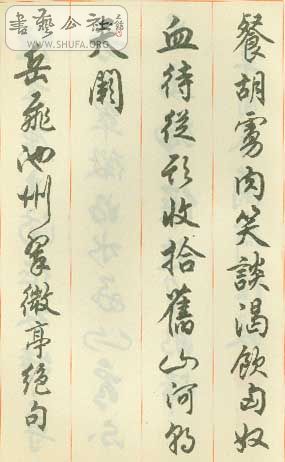 書藝公社
WWW.SHUFA.ORG
餐胡虜肉笑談渴飲匈奴
血待從頭收拾舊山河朝
天闕
岳飛池州翠微亭絕句